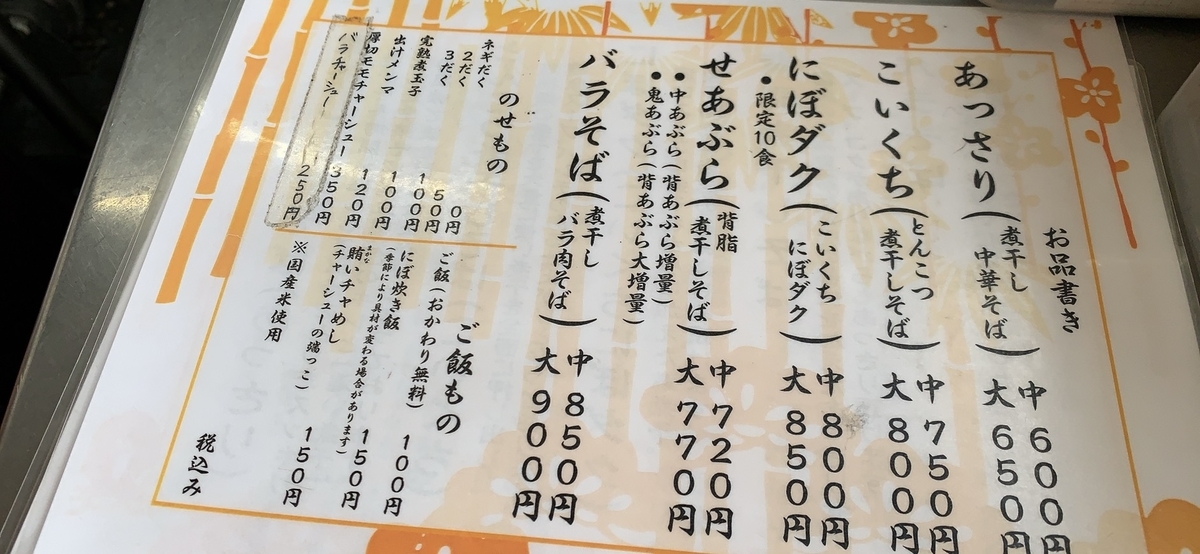 お品書き
あっさり(煮干し中華そば) 中 600円
大 650円
こいくち(とんこつ煮干しそば) 中 750円
大 800円
にぼダク(こいくちにぼダク) 中 800円
大 850円
・限定10食
せあぶら(背脂煮干しそば) 中 720円
大 770円
・中あぶら(背あぶら増量)
・鬼あぶら(背あぶら大増量)
バラそば(煮干しバラ肉そば) 中 850円
大 900円
のせもの
ネギだく 0円
2だく 50円
3だく 100円
完熟煮玉子 100円
出汁メンマ 120円
厚切モモチャーシュー 350円
バラチャーシュー 250円
ご飯もの
ご飯(おかわり無料) 100円
にぼ炊き飯 150円
(季節により具材が変わる場合があります)
賄いチャめし 150円
まかな
(チャーシューの端っこ)
※国産米使用
税込み